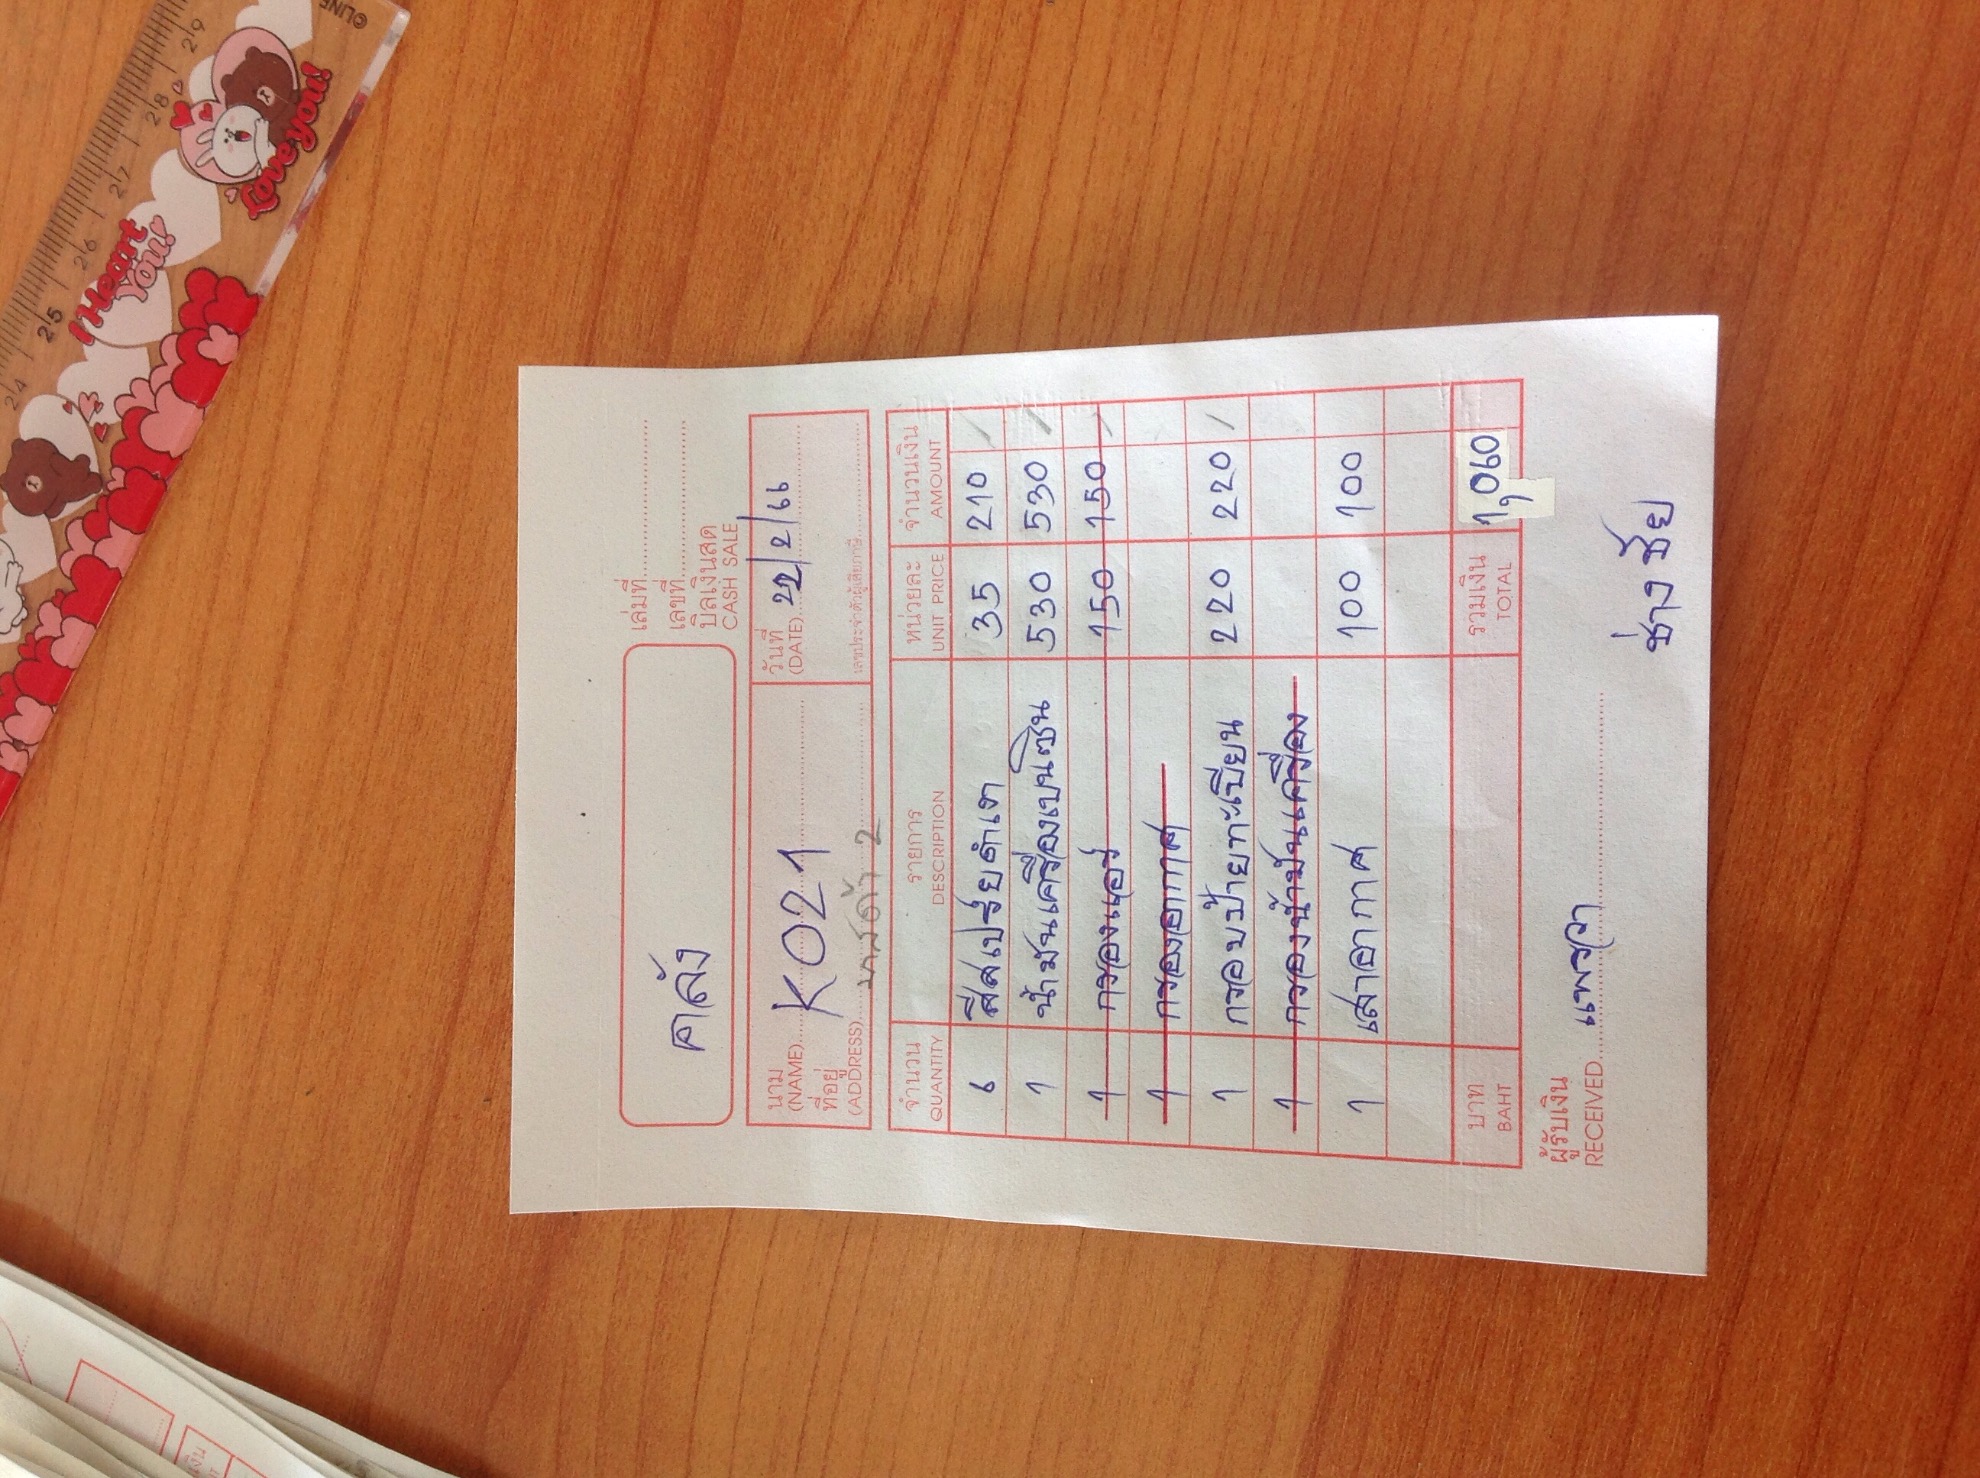 คลัง
เล่มที่
เลขที่
บิลเงินสด
CASH SALE
นาม
(NAME) K021
วันที่
(DATE) 22/2/66
ที่อยู่
(ADDRESS) มาสด้า 2
เลขประจำตัวผู้เสียภาษี
จำนวน รายการ หน่วยละ จำนวนเงิน
QUANTITY DESCRIPTION UNIT PRICE AMOUNT
6 สีสเปรย์ดำเงา 35 210
1 น้ำมันเครื่องเบนซิน 530 530
1 กรองแอร์ 150 150
1 กรองอากาศ
1 กรอบป้ายทะเบียน 220 220
1 กรองน้ำมันเครื่อง
1 เสาอากาศ 100 100
บาท รวมเงิน 1,060
BAHT TOTAL
ผู้รับเงิน
RECEIVED แพรวา
ช่างชัย
I Heart
You!
Love you!
©LINE
24 25 26 27 28 29